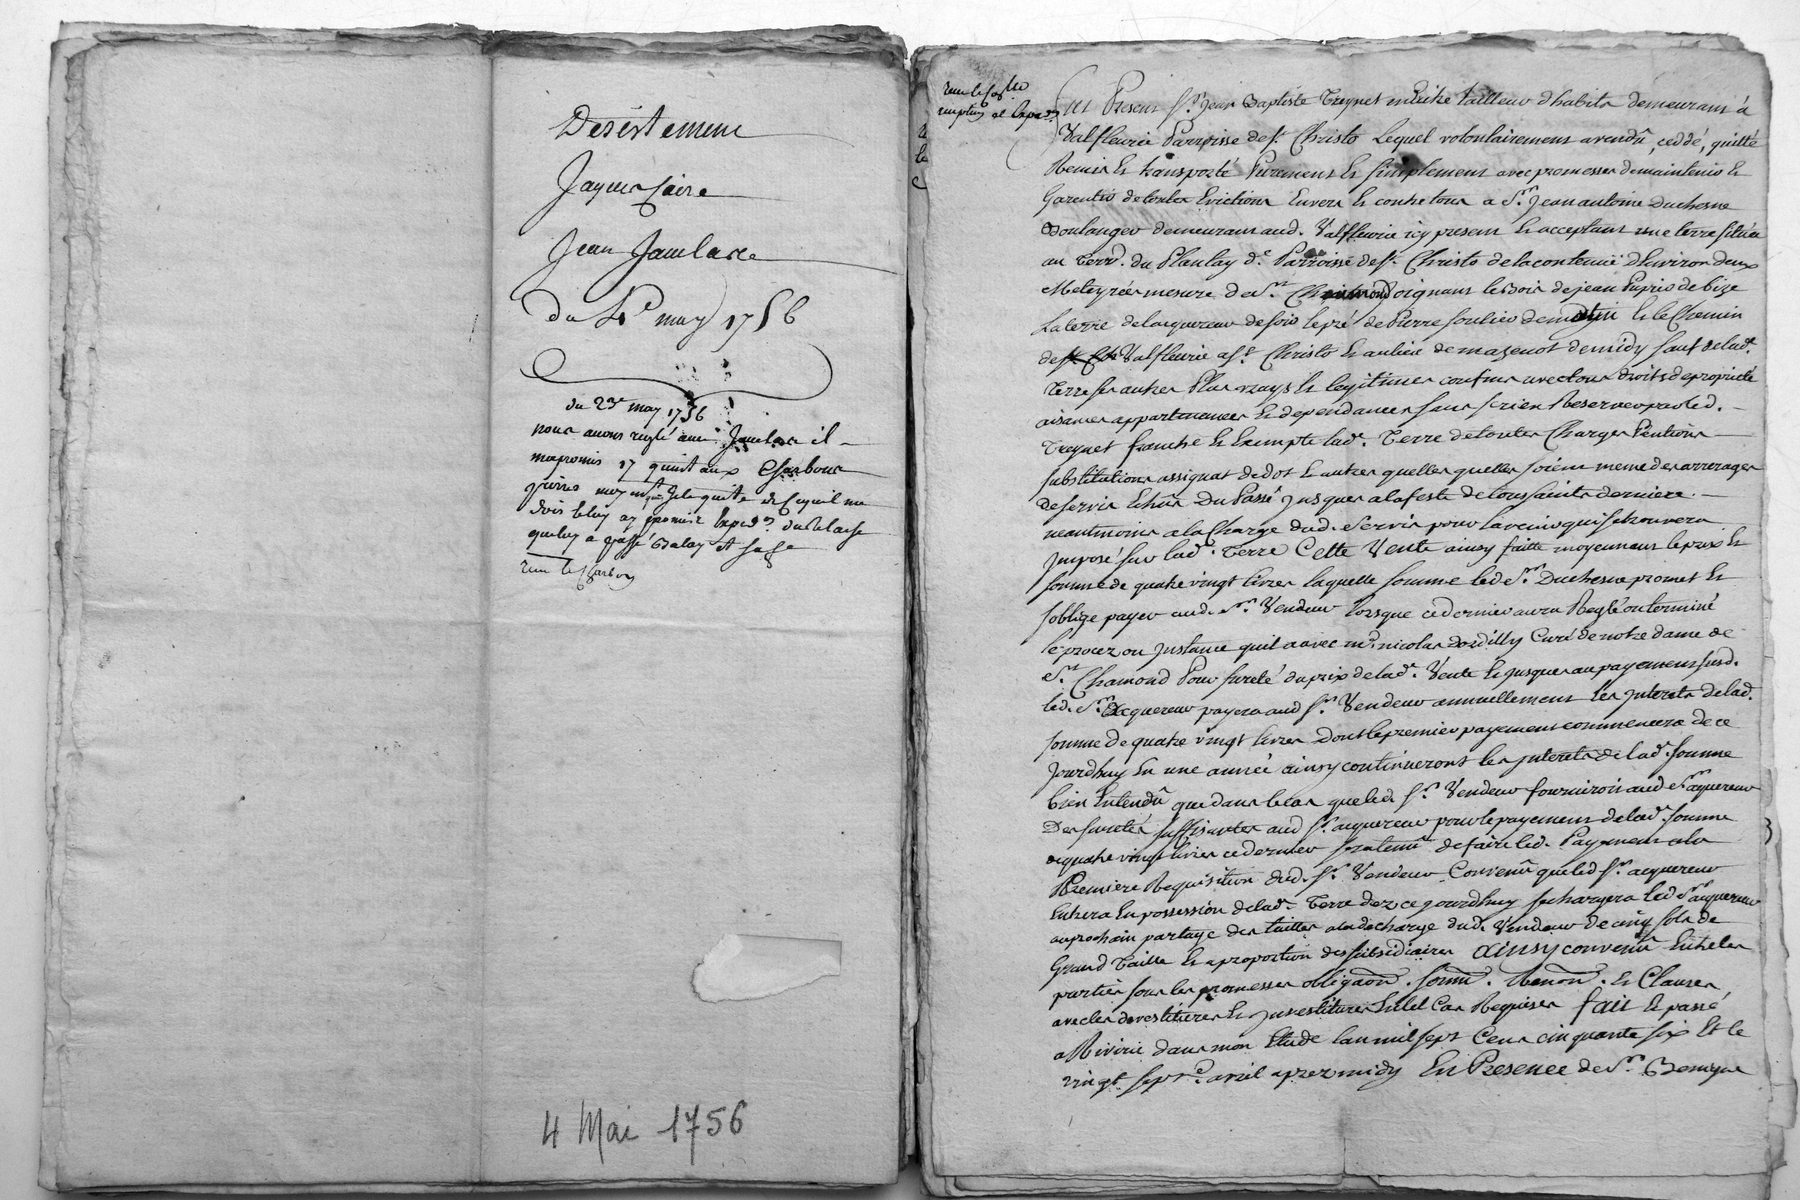 Desistement
Jaques faire
Jean Janelare
Du 4e may 1756
du 23e may 1756
nous avons reglé avec Janelare il
ma promis 17 quintaux Charbon
moy je le quite de ce quil me
dois et luy ay promis
que luy a passé et
reçu le Charbon
4 Mai 1756
Fut Present Sr. Jean Baptiste Treynet maitre tailleur dhabits demeurant à
Valfleurie Parroisse de st. Christo Lequel volontairement a vendû, ceddé, quitté
Remis et transporté Purement et simplement avec promesse de maintenir et
Garentir de toutes Evictions Envers et contre tous a Sr. Jean antoine Duchesne
Boulanger demeurant aud. Valfleurie icy present et acceptant une terre située
au Terr. du Plantay de. Parroisse de st. Christo de la contenüe dEnviron deux
Meteyrées mesure de St. Chamond joignant le bois de jean de bize
La terre de lacquereur de soir le pré de Pierre soulier de matin et le Chemin
de Valfleurie a st. Christo et au lieu de mazenot de midy sauf de lad.
Terre ses autres Plus vrays et legitimes confins avec tous droits de proprieté
aisances appartenances et dependances sans se rien Reserver par led.
Treynet franche et Exempte lad. Terre de toutes Charges Pentions
substitutions assignat de dot et autres quelles quelles soient meme des arrerages
de servis Echûs Du Passé Jusques a la feste de tous saints derniere.
neantmoins a la Charge dud. Servis pour lavenir qui se trouvera
Imposé sur lad. Terre Cette Vente ainsy faitte moyennant le prix et
somme de quatre vingt livres laquelle somme led Sr. Duchesne promet et
soblige payer aud. Sr. Vendeur lorsque ce dernier aura Reglé ou terminé
le procez ou Instance quil a avec mr. nicolas Dordilly Curé de notre dame de
St. Chamond Pour sureté du prix de lad. Vente et jusques au payement susd.
led. Sr. Acquereur payera aud Sr. Vendeur annuellement les Interets de lad.
somme de quatre vingt livres dont le premier payement commencera de ce
Jourdhuy En une année ainsy continueront les Interets de lad. somme
bien Entendû que dans le cas que led. Sr. Vendeur fourniroit aud Sr. acquereur
Des suretés suffisantes aud Sr. acquereur pour le payement de lad. somme
de quatre vingt livres ce dernier sera tenu de faire led. Payement a la
Premiere Requisition dud. Sr. Vendeur Convenû que led Sr. acquereur
Entrera En possession de lad. Terre dez ce jourdhuy se chargera led Sr. acquereur
au prochain partage des tailles a la décharge dud. Vendeur de cinq sols de
Grand Taille et a proportion des subsidiaires Ainsy convenû Entre les
parties sous les promesses obligaons. soum. Renon. et Clauses
avec les devestitures et Investitures En tel Cas Requises fait et passé
a Riverie dans mon Etude lan mil sept Cent cinquante six Et le
vingt sept e. avril aprez midy En Presence de Sr. Benigne